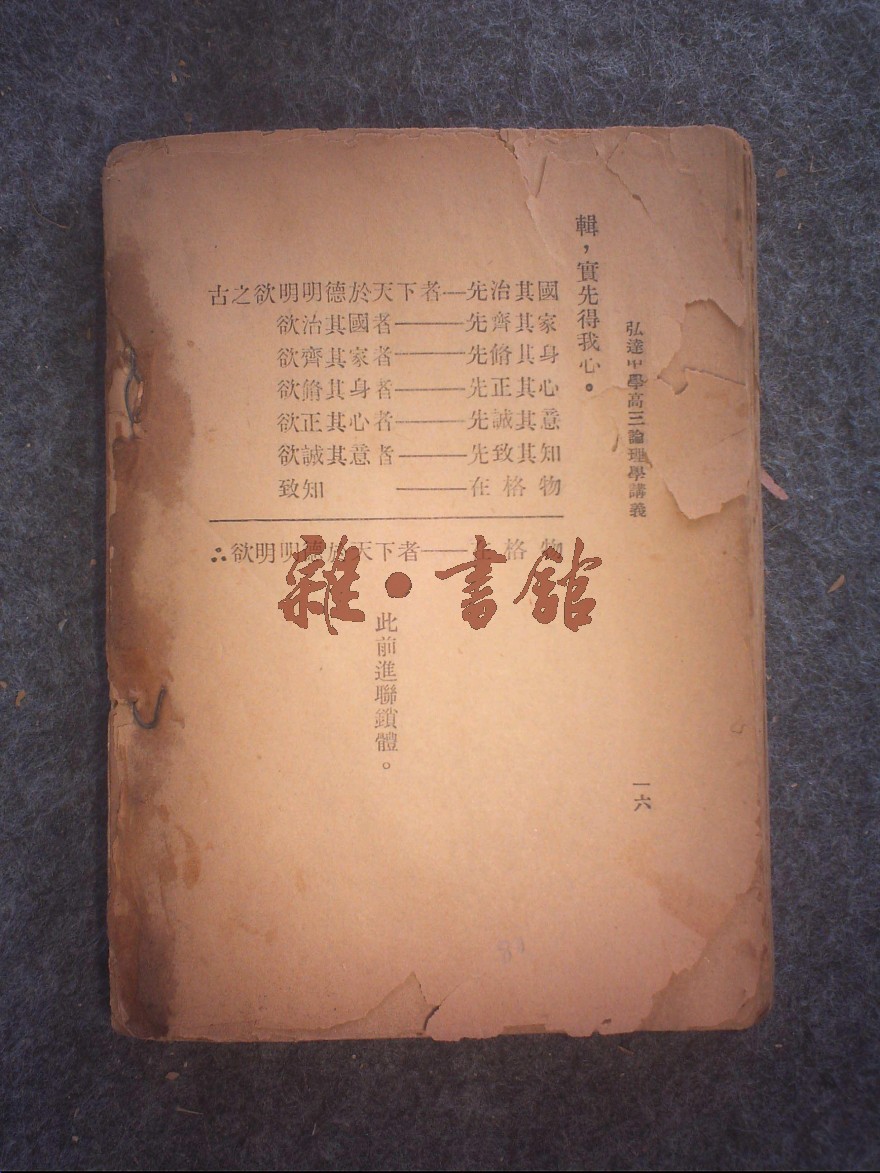 弘達中學高三論理學講義
一六
輯，實先得我心。
古之欲明明德於天下者—先治其國
欲治其國者———先齊其家
欲齊其家者———先脩其身
欲脩其身者———先正其心
欲正其心者———先誠其意
欲誠其意者———先致其知
致知———在格物
∴欲明明德於天下者——在格物
此前進聯鎖體。
雜·書館